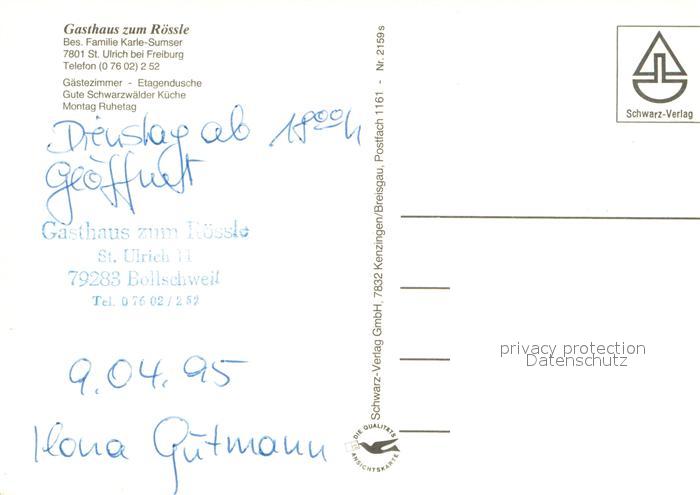 Gasthaus zum Rössle
Bes. Familie Karle-Sumser
7801 St. Ulrich bei Freiburg
Telefon (0 76 02) 2 52
Gästezimmer - Etagendusche
Gute Schwarzwälder Küche
Montag Ruhetag
Dienstag ab 18ººh
Geöffnet
Gasthaus zum Rössle
St. Ulrich 11
79283 Bollschweil
Tel. 0 76 02 / 2 52
9.04.95
Ilona Gutmann
Schwarz-Verlag GmbH, 7832 Kenzingen/Breisgau, Postfach 1161 - Nr. 2159 s
DIE QUALITÄTS
ANSICHTSKARTE
Schwarz-Verlag
privacy protection
Datenschutz